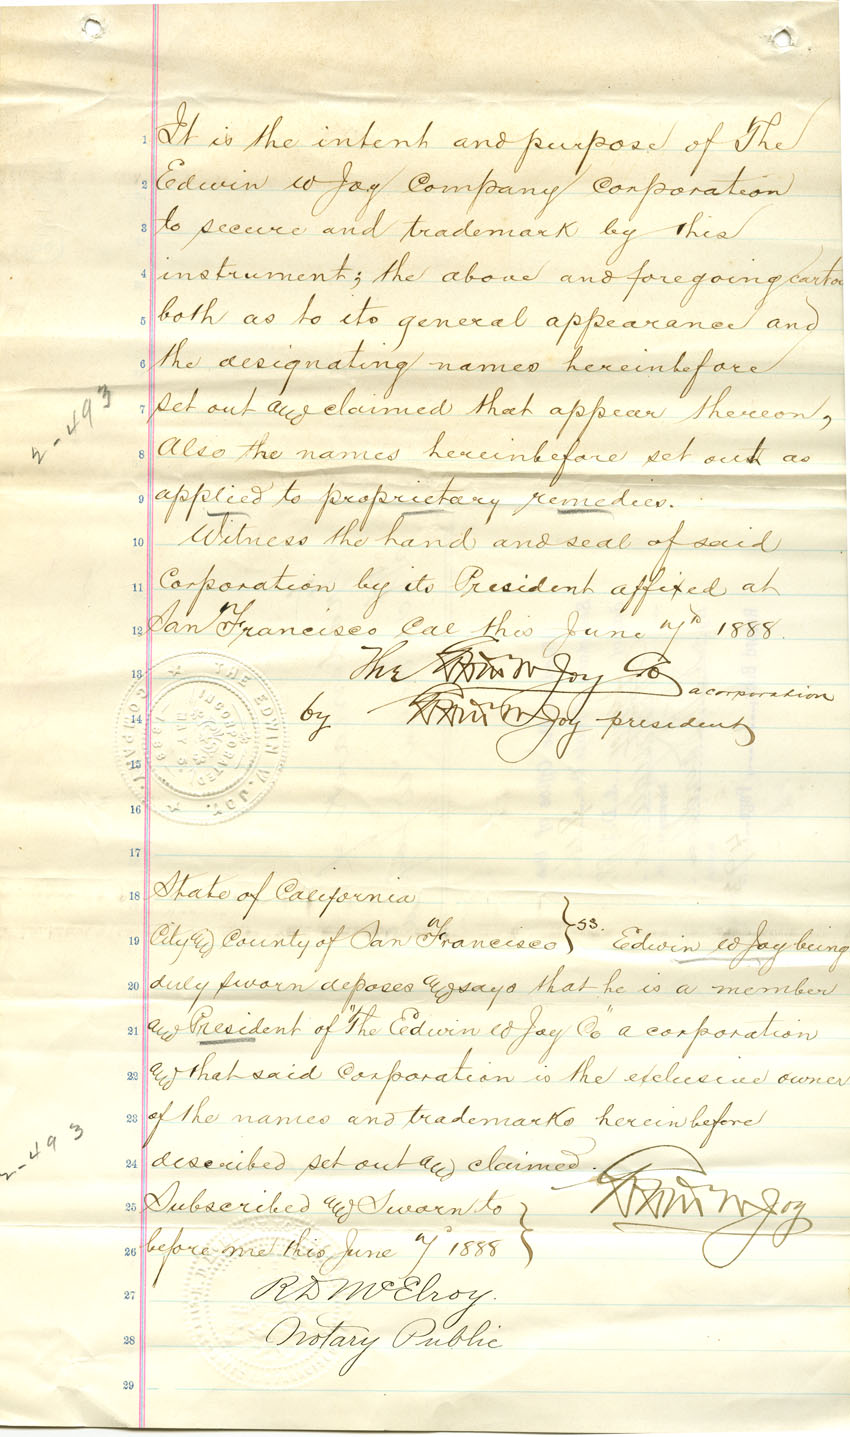 1 It is the intent and purpose of The
2 Edwin W Joy Company Corporation
3 to secure and trademark by this
4 instrument; the above and foregoing carton
5 both as to its general appearance and
6 the designating names hereinbefore
7 set out and claimed that appear thereon,
8 Also the names hereinbefore set out as
9 applied to proprietary remedies.
10 Witness the hand and seal of said
11 Corporation by its President affixed at
12 San Francisco Cal this June 7th 1888.
13 The Edwin W Joy Co a corporation
14 by Edwin W Joy president
15
16
17
THE EDWIN W. JOY COMPANY.
INCORPORATED
1888
18 State of California
19 City and County of San Francisco } ss. Edwin W Joy being
20 duly sworn deposes and says that he is a member
21 and President of "The Edwin W Joy Co" a corporation
22 and that said Corporation is the exclusive owner
23 of the names and trademarks hereinbefore
24 described set out and claimed.
Edwin W Joy
25 Subscribed and Sworn to
26 before me this June 7 1888 }
27 R D McElroy.
28 Notary Public
29
2-493
2-493